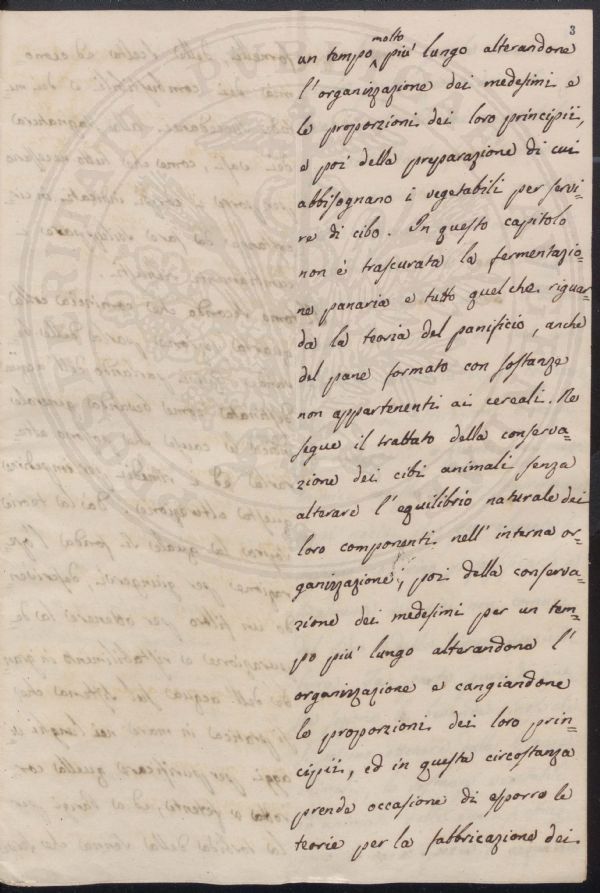 3
un tempo molto più lungo alterandone
l'organizzazione dei medesimi e
le proporzioni dei loro principii,
e poi della preparazione di cui
abbisognano i vegetabili per servi=
re di cibo. In questo capitolo
non è trascurata la fermentazio=
ne panaria e tutto quel che riguar=
da la teoria del panificio, anche
del pane formato con sostanze
non appartenenti ai cereali. Ne
segue il trattato della conserva=
zione dei cibi animali senza
alterare l'equilibrio naturale dei
loro componenti nell'interna or=
ganizzazione; poi della conserva=
zione dei medesimi per un tem=
po più lungo alterandone l'
organizzazione e cangiandone
le proporzioni dei loro prin=
cipii, ed in questa circostanza
prende occasione di esporre le
teorie per la fabbricazione dei